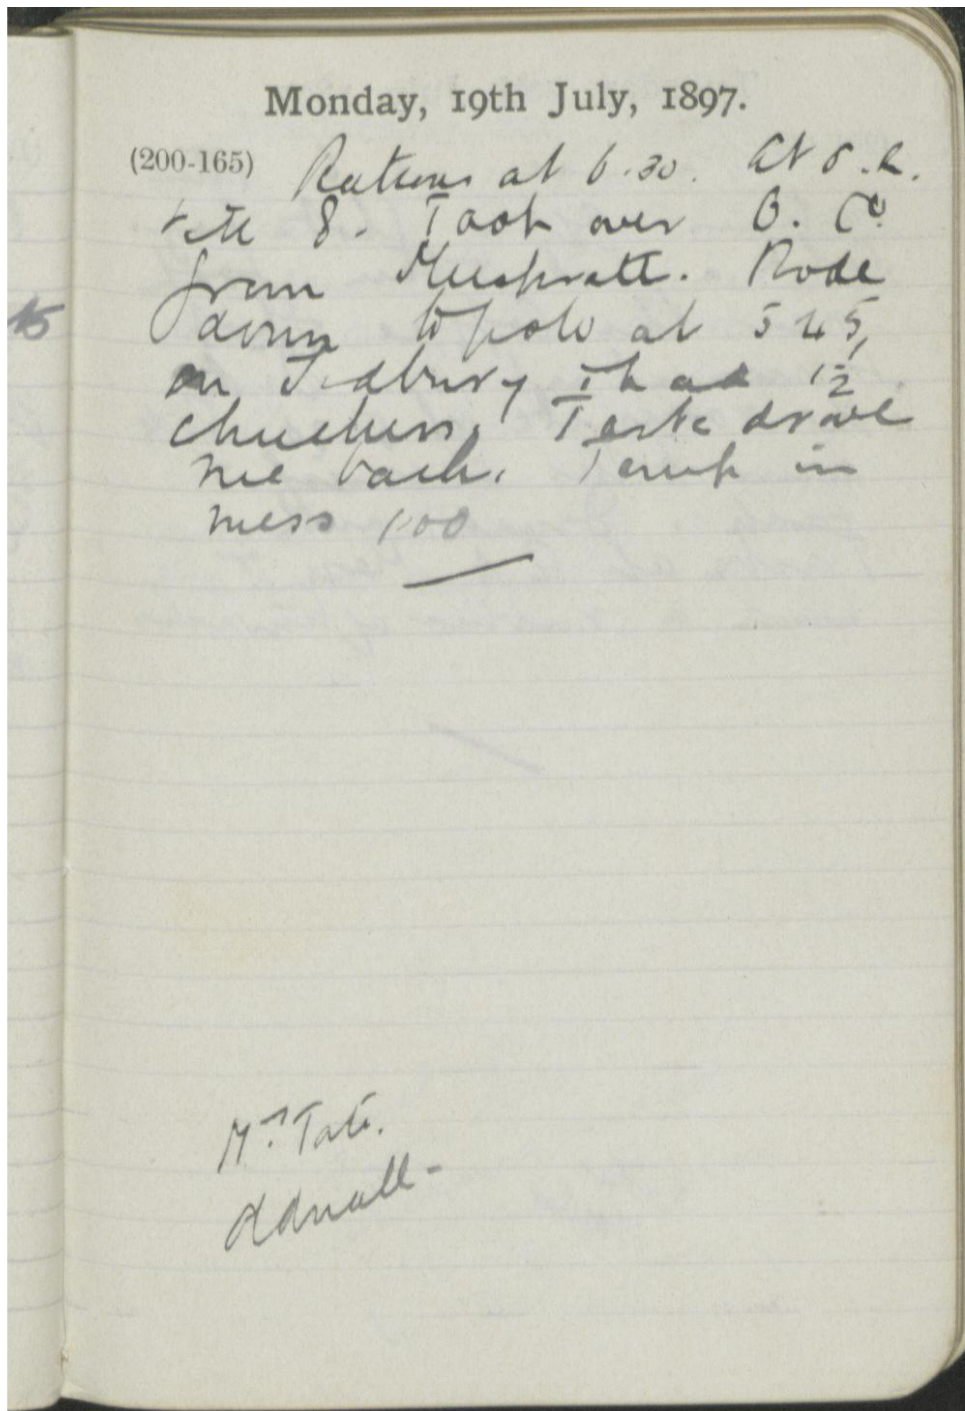 Monday, 19th July, 1897.
(200-165) Rations at 6.30. At O.R.
till 8. Took over B. Co
from Muspratt. Rode
down to polo at 5 45,
on Tedbury I had 12
chuckers. Teste drove
me back. Temp in
mess 100
15
Mr Tate.